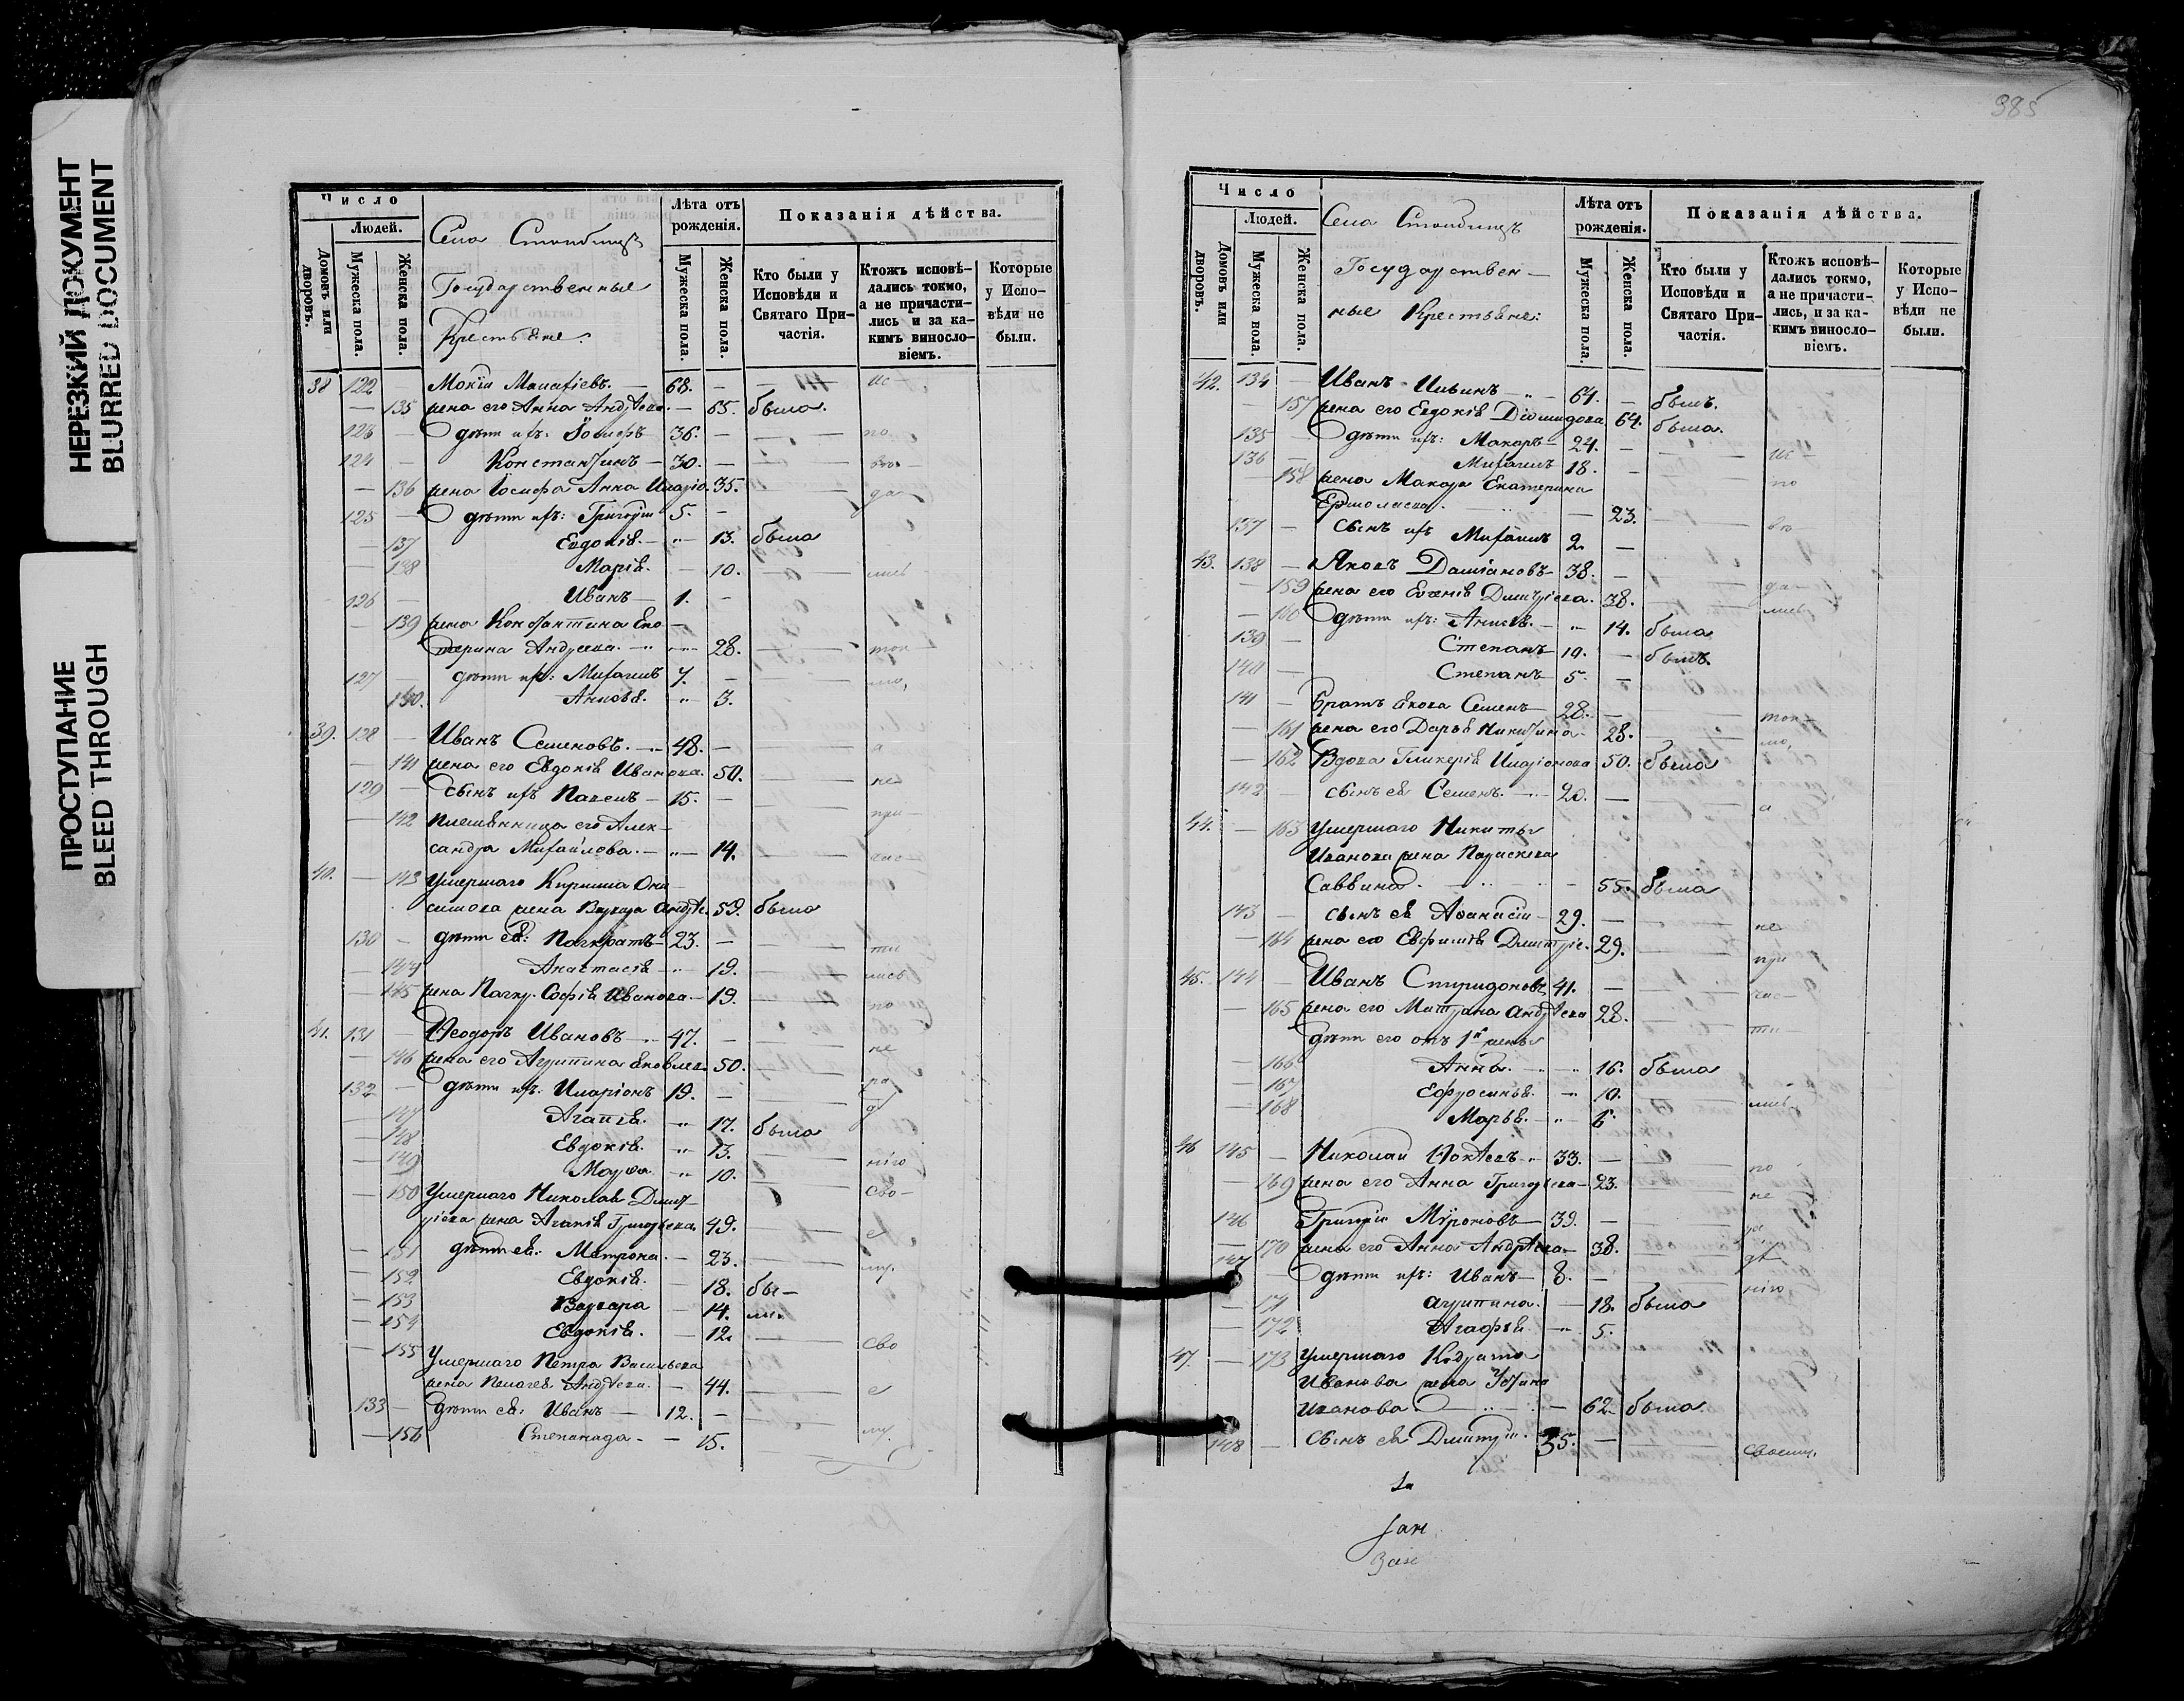 НЕРЕЗКИЙ ДОКУМЕНТ
BLURRED DOCUMENT
ПРОСТУПАНИЕ
BLEED THROUGH
Число
Людей.
Домовъ или дворовъ.
Мужеска пола.
Женска пола.
Села
Государственные
Крестьяне.
Лѣта отъ рожденія.
Мужеска пола.
Женска пола.
Показанія дѣйства.
Кто были у Исповѣди и Святаго Причастія.
Ктожъ исповѣдались токмо, а не причастились и за какимъ винословіемъ.
Которые у Исповѣди не были.
38 122 68. ис-
135 жена его Анна Андрѣева 65. была.
123 дѣти ихъ: Іосифъ 36. по
124 Константинъ 30. вѣ
136 жена Іосифа Анна 35. да
125 дѣти ихъ: Григорій 5.
137 Евдокія 13. была
138 Марія 10. лись
126 Иванъ 1.
139 жена Константина Ека-
терина Андреева 28. ток
127 дѣти ихъ: Михаилъ 7. мо,
140. 3.
39. 128 Иванъ Семеновъ 48. а
141 жена его Евдокія Иванова 50. не
129 сынъ ихъ Павелъ 15. при-
142 племянница его Алек-
сандра Михайлова 14. час-
40. 143 умершаго Кирилла Они-
симова жена Варвара Андрѣе. 59. была
130 дѣти ея: Панкратъ 23. ти
144 Анастасія 19. лись
145 жена Панкр. Софія Иванова 19. по
41. 131 Ѳеодоръ Ивановъ 47. не
146 жена его Агрипина Яковлева 50. ра
132 дѣти ихъ: Иларіонъ 19. дѣ
147 Агапія 17. была
148 Евдокія 13. нію
149 Марѳа 10. сво-
150 Умершаго Николая Димит-
ріева жена Агапія Григорьева 49. е
151 дѣти ея: Матрона 23. му.
152 Евдокія 18. бы-
153 Варвара 14. ли.
154 Евдокія 12. сво
155 Умершаго Петра Васильева
жена Пелагея Андрѣева 44. е
133 дѣти ея: Иванъ 12. му.
156 Степанида 15.
385
Число
Людей.
Домовъ или дворовъ.
Мужеска пола.
Женска пола.
Села
Государствен-
ные Крестьяне:
Лѣта отъ рожденія.
Мужеска пола.
Женска пола.
Показанія дѣйства.
Кто были у Исповѣди и Святаго Причастія.
Ктожъ исповѣдались токмо, а не причастились, и за какимъ винословіемъ.
Которые у Исповѣди не были.
42. 134 Иванъ Ильинъ 64. былъ.
157 жена его Евдокія Діомидова 64. была.
135 дѣти ихъ: Макаръ 24. ис-
136 Михаилъ 18. по
158 жена Макара Екатерина
Ермолаева 23. вѣ
137 сынъ ихъ Михаилъ 2.
43. 138 Яковъ Даміановъ 38. да-
159 жена его Евгенія Дмитріева 38. лись
160 дѣти ихъ: 14. была
139 Степанъ 10. былъ.
140 Степанъ 5.
141 Братъ Якова Семенъ 28. ток-
161 жена его Дарья Никитина 28. мо,
162 Вдова Гликерія Иларіонова 50. была
142 сынъ ея Семенъ 20. а
44. 163 умершаго Никиты
Иванова жена Параскева
Саввина 55. была
143 сынъ ея Аѳанасій 29. не
164 жена его Евфимія Дмитріе. 29. при
45. 144 Иванъ Спиридоновъ 41. час-
165 жена его Матрона Андрѣева 28. ти-
дѣти его отъ 1й жены
166 Анна 16. была
167 Ефросинья 10. лись
168 Марья 6.
46 145 Николай 33. по
169 жена его Анна Григорьева 23. не
146 Григорій Мѵроновъ 39. ра
170 жена его Анна Андрѣева 38. дѣ
147 дѣти ихъ: Иванъ 8. нію,
171 Агрипина 18. была
172 Агафья 5.
47. 173 умершаго Кодрата
Иванова жена Устина
Иванова 62. была.
148 Сынъ ея Дмитрій 35. своему.